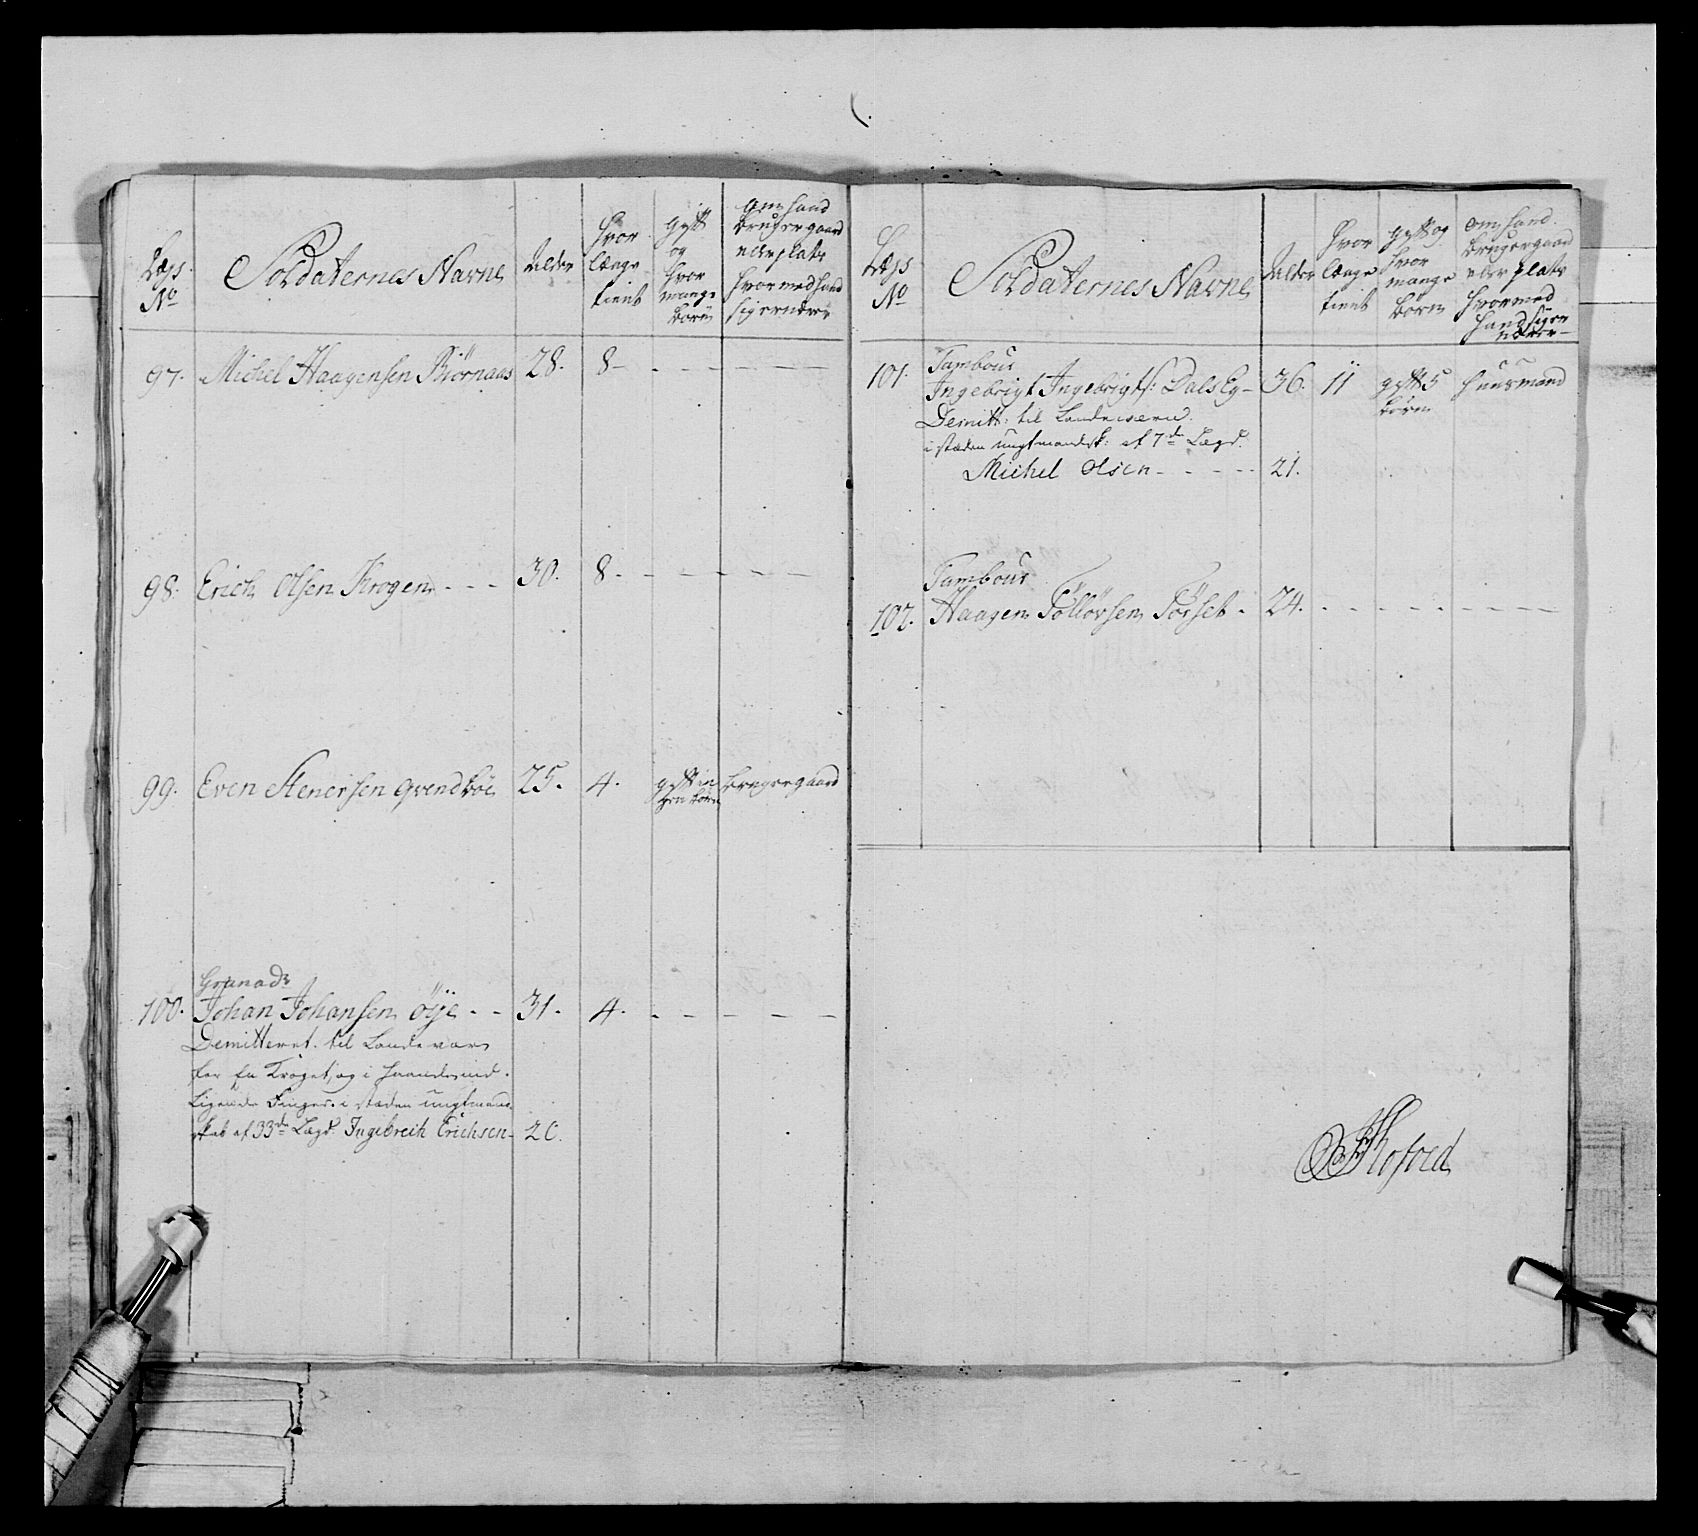 Lægs No
Soldaternes Navne
Alder
hvor længe tient
gift og hvor mange børn
om hand bruger gaard eller plads hvormed hand sig ernærer
97. Michel Haagensen Biørnaas 28. 8 -
98. Erich Olsen Krogen - - - 30. 8 -
99. Even Stenersen Qvendbøe 25. 4. gift in gen børn bruger gaard
Granadr
100. Johan Johansen Øye - - 31. 4. - -
Demitteret til Landevær
for en Kroget, og i haanden ind
Ligende Finger. i stæden ungtmand
skab af 33de Lægd. Ingebreth Erichsen - 20.
Lægs No
Soldaternes Navne
Alder
hvor længe tient
gift og hvor mange børn
om hand bruger gaard eller plads hvormed hand sig ernærer
Tambour
101. Ingebrigt Ingebrigts: Dals Eg - 36. 11 gift 5 børn huusmand
Demitt: til Landeværn.
i stæden ungtmandsk: af 7de Lægd.
Michel Olsen - - - - - 21.
Tambour
102. Haagen Tølløvsen Tørset - 24. - -
Kofoed